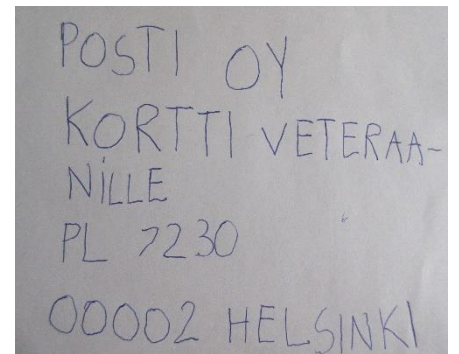 POSTI OY
KORTTI VETERAA-
NILLE
PL 7230
00002 HELSINKI